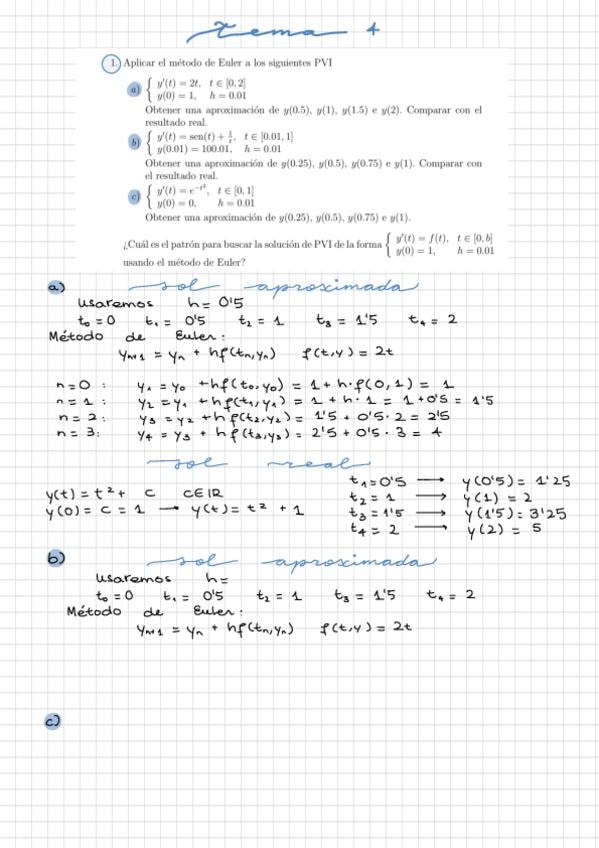 tema 4
1. Aplicar el método de Euler a los siguientes PVI
a) { y'(t) = 2t, t ∈ [0, 2]
y(0) = 1, h = 0.01
Obtener una aproximación de y(0.5), y(1), y(1.5) e y(2). Comparar con el
resultado real.
b) { y'(t) = sen(t) + 1/t, t ∈ [0.01, 1]
y(0.01) = 100.01, h = 0.01
Obtener una aproximación de y(0.25), y(0.5), y(0.75) e y(1). Comparar con
el resultado real.
c) { y'(t) = e^{-t²}, t ∈ [0, 1]
y(0) = 0, h = 0.01
Obtener una aproximación de y(0.25), y(0.5), y(0.75) e y(1).
¿Cuál es el patrón para buscar la solución de PVI de la forma { y'(t) = f(t), t ∈ [0, b]
y(0) = 1, h = 0.01
usando el método de Euler?
a) sol aproximada
usaremos h = 0'5
t₀ = 0 t₁ = 0'5 t₂ = 1 t₃ = 1'5 t₄ = 2
Método de Euler:
yₙ₊₁ = yₙ + hf(tₙ,yₙ) f(t,y) = 2t
n=0: y₁ = y₀ + hf(t₀,y₀) = 1 + h·f(0,1) = 1
n=1: y₂ = y₁ + hf(t₁,y₁) = 1 + h·1 = 1+0'5 = 1'5
n=2: y₃ = y₂ + hf(t₂,y₂) = 1'5 + 0'5·2 = 2'5
n=3: y₄ = y₃ + hf(t₃,y₃) = 2'5 + 0'5·3 = 4
sol real
t₁=0'5 → y(0'5) = 1'25
y(t) = t² + C C∈IR t₂ = 1 → y(1) = 2
y(0) = C = 1 → y(t) = t² + 1 t₃ = 1'5 → y(1'5) = 3'25
t₄ = 2 → y(2) = 5
b) sol aproximada
usaremos h =
t₀ = 0 t₁ = 0'5 t₂ = 1 t₃ = 1'5 t₄ = 2
Método de Euler:
yₙ₊₁ = yₙ + hf(tₙ,yₙ) f(t,y) = 2t
c)